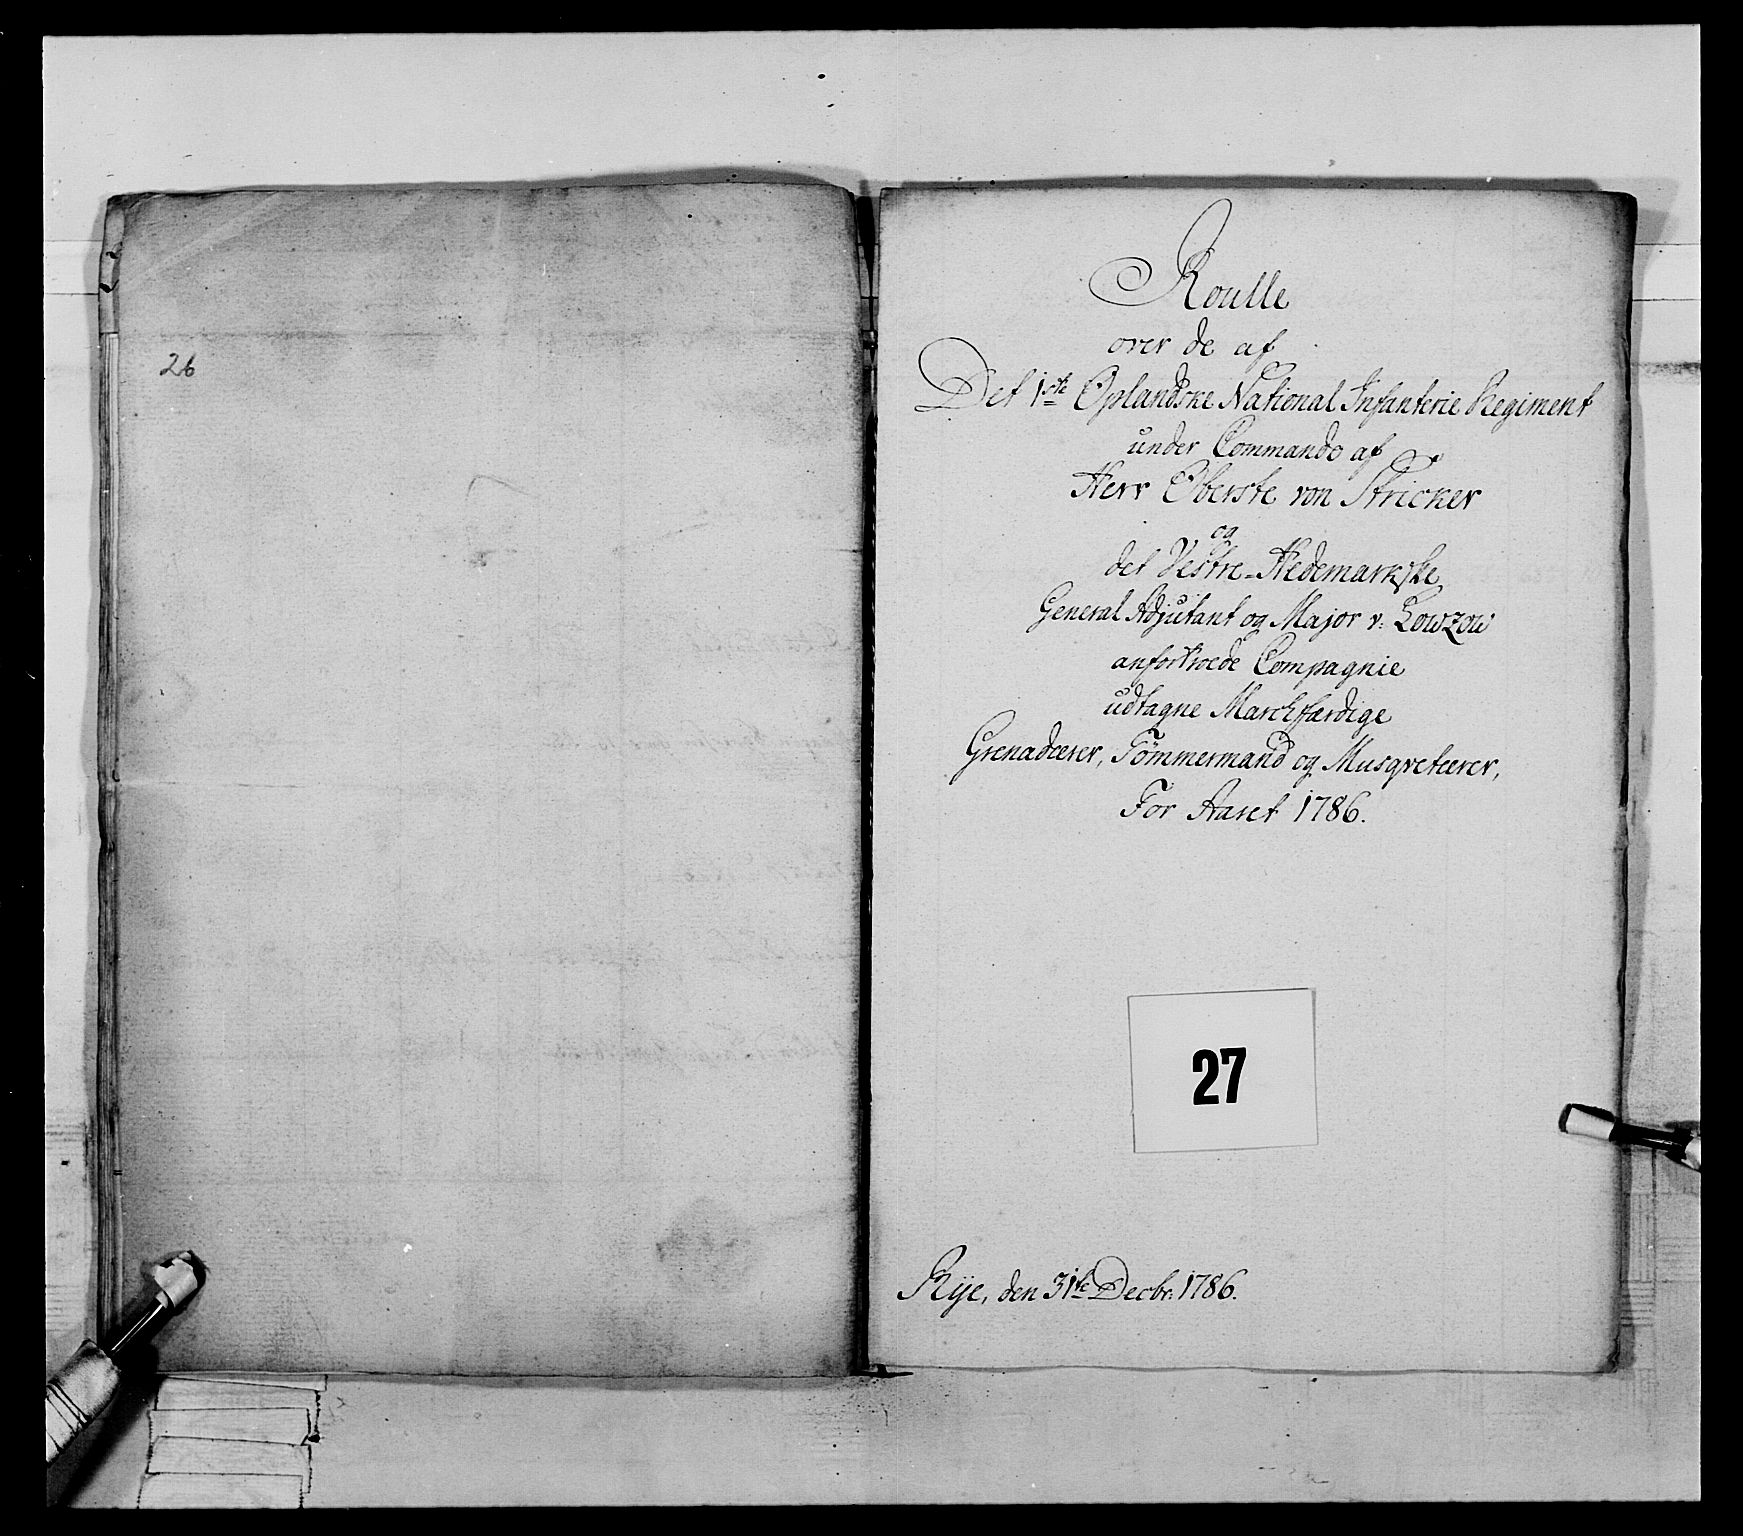 26
Roulle
over de af
Det 1ste Oplandske National Infanterie Regiment
under Commando af
Herr Oberste von Stricker
og
det Vestre-Hedemarkske
General Adjutant og Major v: Lowzow
anfortroede Compagnie
udtagne Marchfærdige
Grenadeerer, Tømmermænd og Musqveteerer,
For Aaret 1786.
27
Rye, den 31te Decbr: 1786.